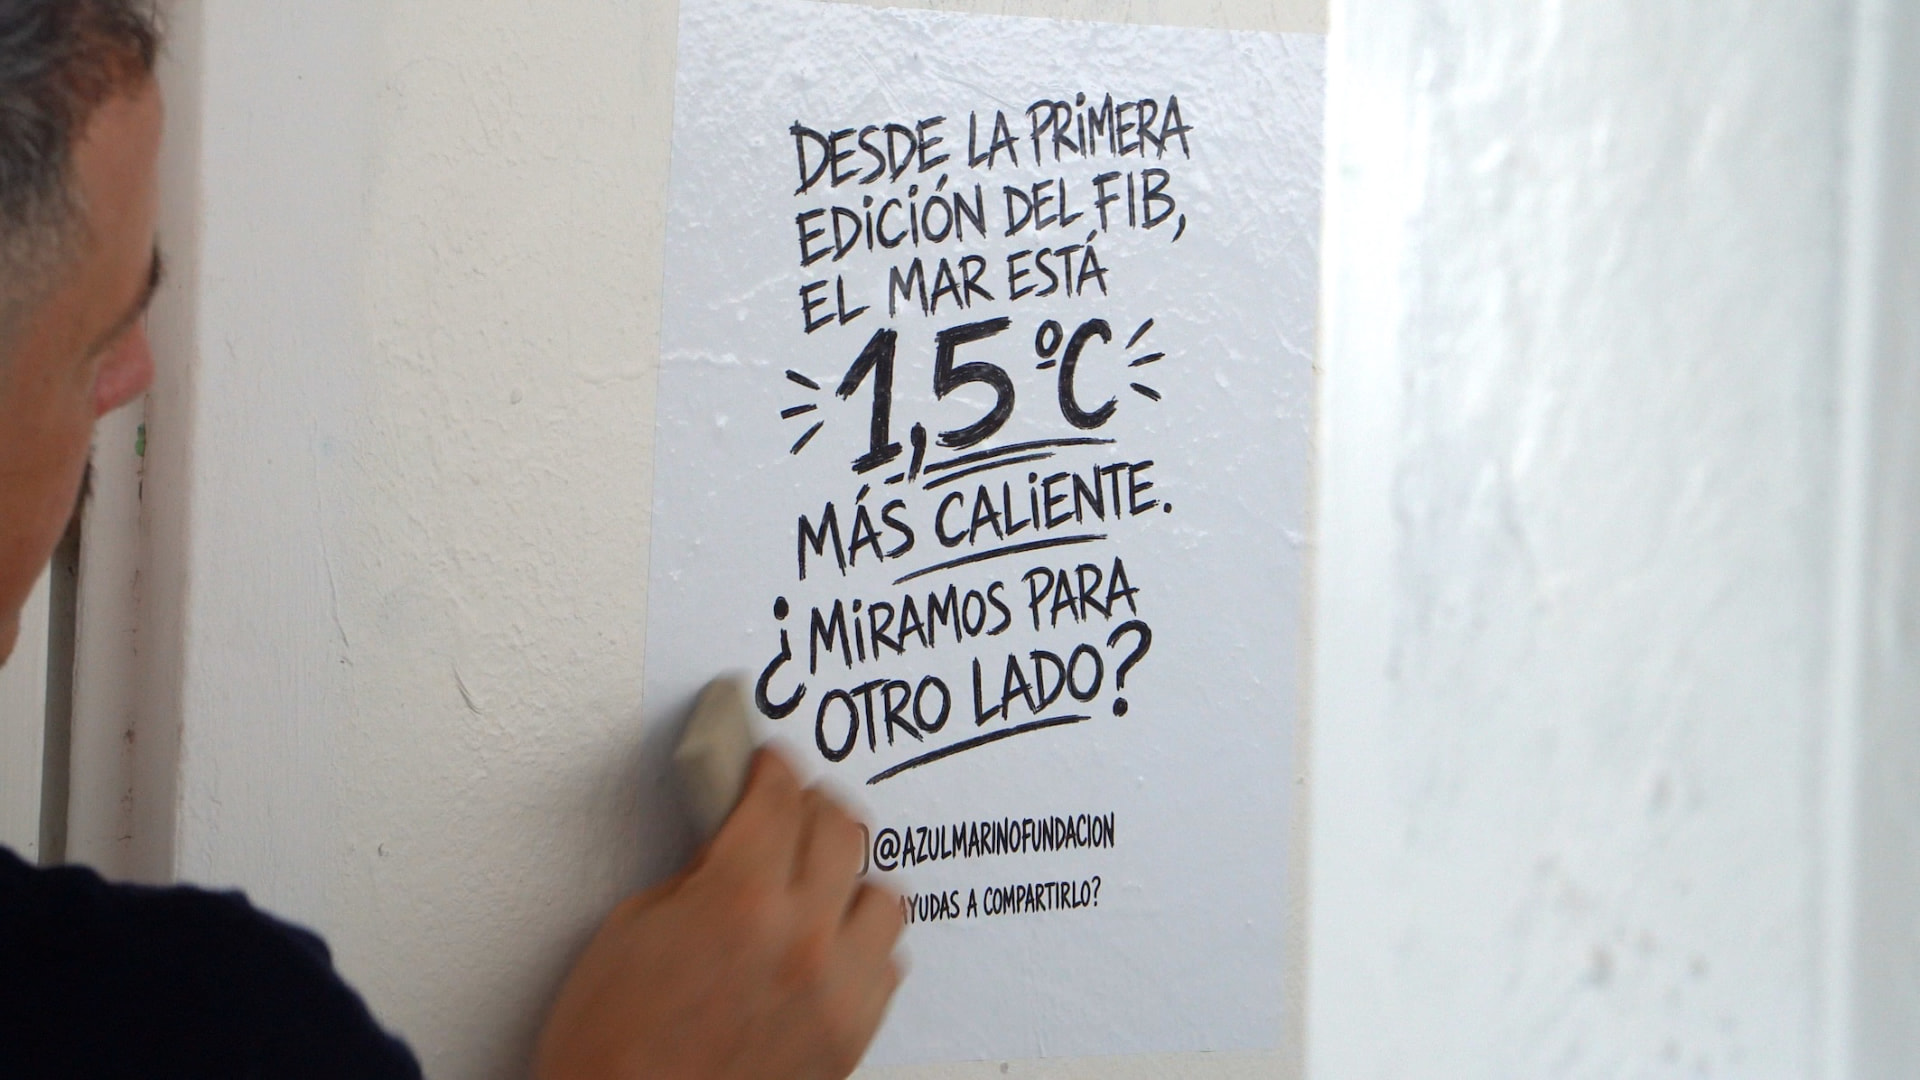 DESDE LA PRIMERA
EDICIÓN DEL FIB,
EL MAR ESTÁ
1,5ºC
MÁS CALIENTE.
¿MIRAMOS PARA
OTRO LADO?
@AZULMARINOFUNDACION
AYUDAS A COMPARTIRLO?